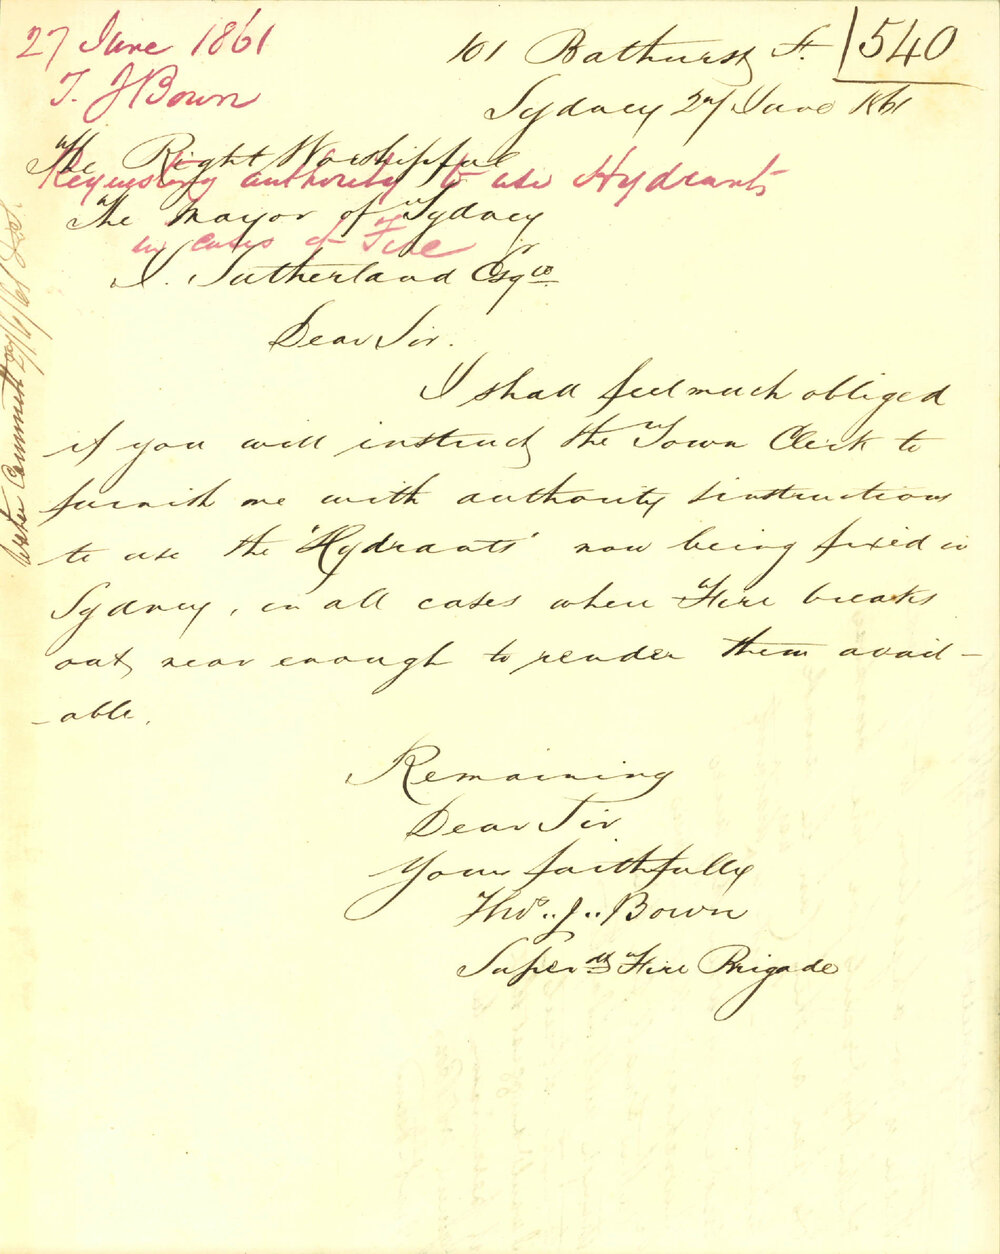 27 June 1861
T. J Bown
540
101 Bathurst St.
Sydney 27 June 1861
The Right Worshipful
Requesting authority to use Hydrants
The Mayor of Sydney
in cases of Fire
J. Sutherland Esqre
Dear Sir.
I shall feel much obliged
if you will instruct the Town Clerk to
furnish me with authority & instructions
to use the "Hydrants" now being fixed in
Sydney, in all cases where Fire breaks
out, near enough to render them avail-
-able.
Remaining
Dear Sir
Yours faithfully
Thos. J. Bown
Superdt Fire Brigade
Water Committee 27/6/61